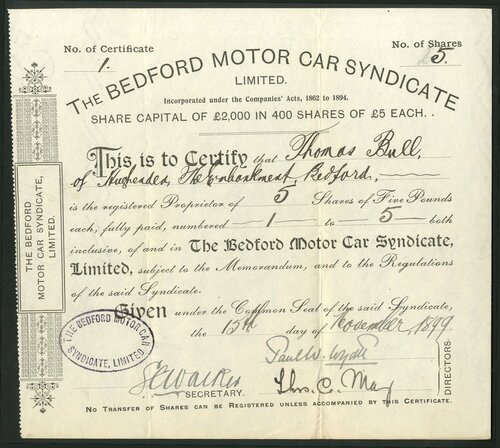 No. of Certificate
1.
No. of Shares
5.
THE BEDFORD MOTOR CAR SYNDICATE
LIMITED.
Incorporated under the Companies' Acts, 1862 to 1894.
SHARE CAPITAL OF £2,000 IN 400 SHARES OF £5 EACH.
This is to Certify that Thomas Bull,
of The Embankment, Bedford,
is the registered Proprietor of 5 Shares of Five Pounds
each, fully paid, numbered 1 to 5 both
inclusive, of and in The Bedford Motor Car Syndicate,
Limited, subject to the Memorandum, and to the Regulations
of the said Syndicate.
Given under the Common Seal of the said Syndicate,
the 15th day of November 1899
THE BEDFORD MOTOR CAR
SYNDICATE, LIMITED
SECRETARY.
Thos. C. May
DIRECTORS
No Transfer of Shares can be Registered unless accompanied by this Certificate.
THE BEDFORD
MOTOR CAR SYNDICATE,
LIMITED.